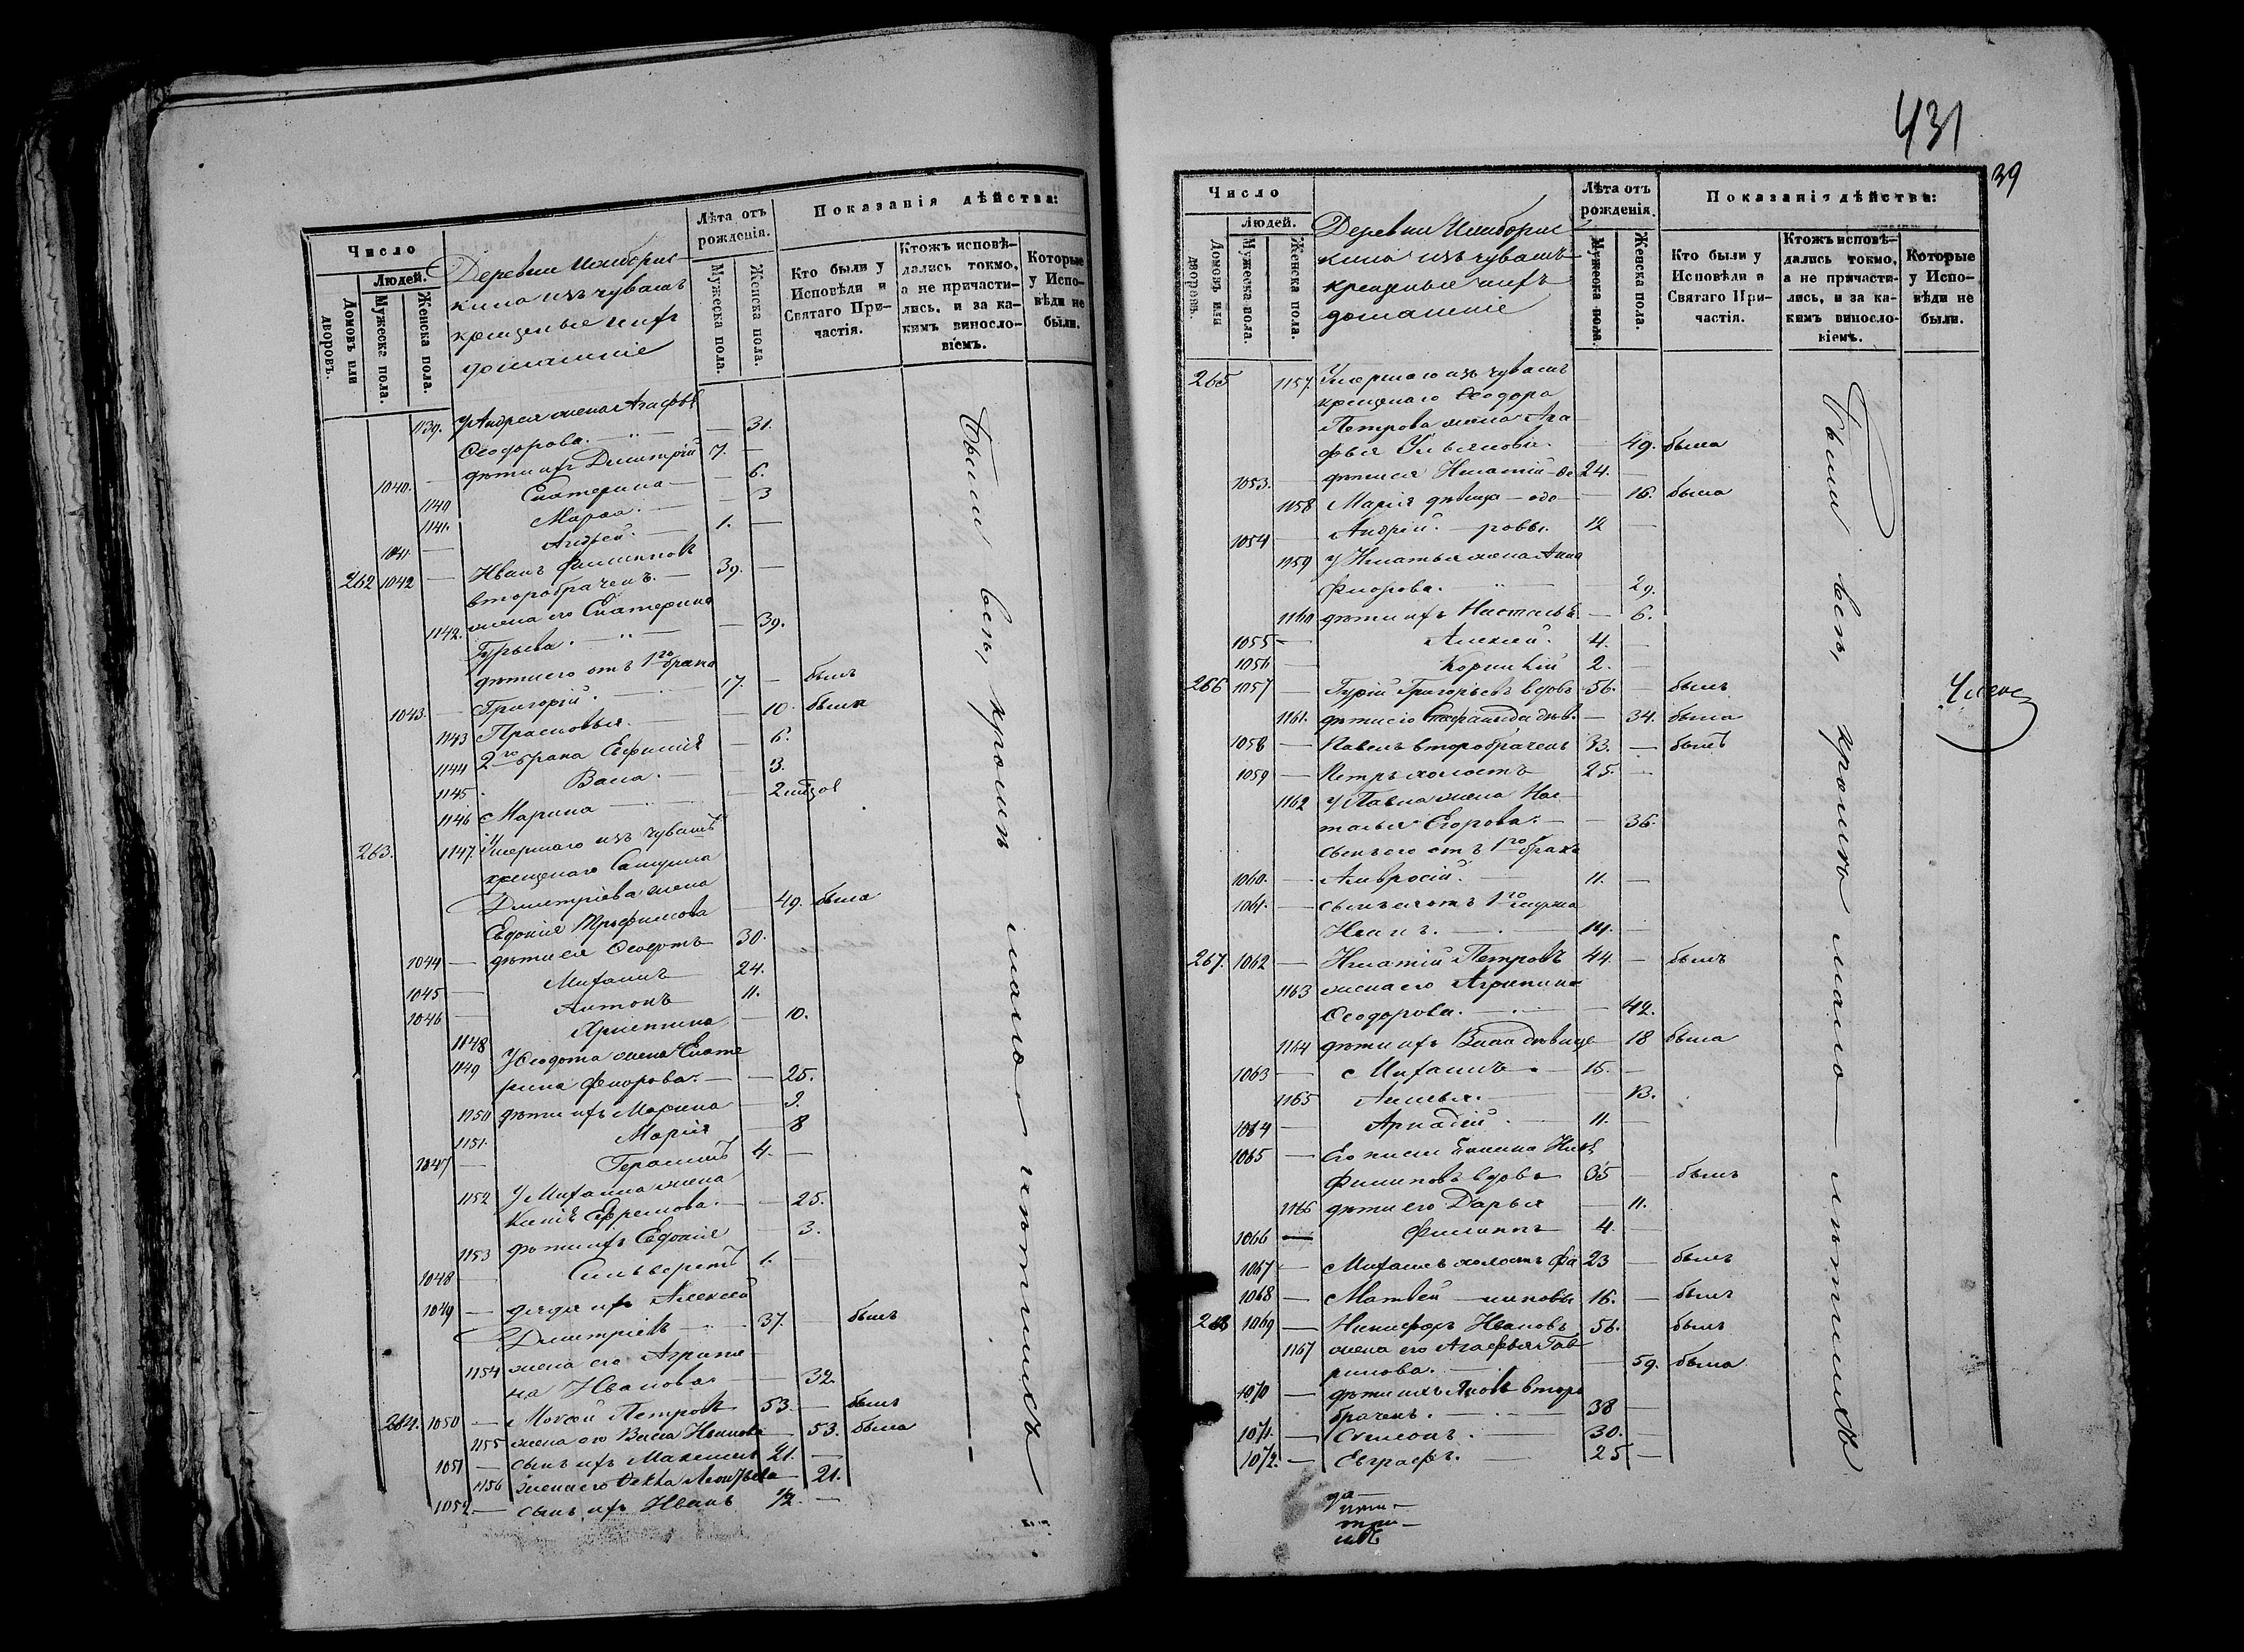 Число
Людей.
Домовъ или дворовъ.
Мужеска пола.
Женска пола.
Деревни
кина изъ чувашъ
крещеные ихъ
домашніе
Лѣта отъ рожденія.
Мужеска пола.
Женска пола.
Показанія дѣйства:
Кто были у Исповѣди и Святаго Причастія.
Ктожъ исповѣ-
дались токмо,
а не причасти-
лись, и за ка-
кимъ винослo-
віемъ.
Которые
у Испо-
вѣди не
были.
1139. У Андрея жена Агафья
Ѳеодорова. — — 31.
1040. — дѣти ихъ Димитрій 7. —
1140 Екатерина — — 6.
1141. Марѳа. — — 3
1041. — Андрей. — 1. —
262 1042 — Иванъ Филипповъ
второбраченъ. — 39. —
1142. жена его Екатерина
Гурьева. — — 39.
дѣти его отъ 1го брака
1043. — Григорій. — 17. — былъ
1143 Прасковья. — 10. была
1144 2го брака Евфимія — 6.
1145 Васса. — 3.
1146 Марина — 2
263. 1147. Умершаго изъ чувашъ
крещенаго
Дмитріева жена
Евдокія Трофимова — 49. была
1044 — дѣти ея Ѳеодотъ 30.
1045 — Михаилъ 24.
1046 — Антонъ 11.
1148 Христина — 10.
1149 У Ѳеодота жена Екате
рина Ѳеодорова. — — 25.
1150 дѣти ихъ Марина — 9.
1151. Марія — 8
1047 — Герасимъ 4. —
1152 У Михаила жена
Ефремова. — — 25.
1153 дѣти ихъ Евдокія — 3.
1048 — Сильвестръ 1. —
1049 — дядя ихъ Алексѣй
Дмитріевъ 37. былъ
1154 жена его Агрипи
на Иванова — 32.
264. 1050 — Моѵсей Петровъ 53. — былъ
1155 жена его Васса Иванова — 53. была
1051 — сынъ ихъ Максимъ 21. —
1156 жена его Ѳекла — 21.
1052. — сынъ ихъ Иванъ 1/2. —
Были всѣ, кромѣ малолѣтнихъ
431
39
Число
Людей.
Домовъ или дворовъ.
Мужеска пола.
Женска пола.
Деревни
кина изъ чувашъ
крещеные ихъ
домашніе
Лѣта отъ
рожденія.
Мужеска пола.
Женска пола.
Показанія дѣйства:
Кто были у
Исповѣди и
Святаго При-
частія.
Ктожъ исповѣ-
дались токмо,
а не причасти-
лись, и за ка-
кимъ винослo-
віемъ.
Которые
у Испо-
вѣди не
были.
265 1157. Умершаго изъ чувашъ
крещенаго Ѳеодора
Петрова жена Ага
фья Ульянова. — 49. была
1053. — дѣти ея Игнатій 24. —
1158 Марія дѣвица — 16. была
1054 — Андрей. 12 —
1159 У Игнатья жена Анна
— 29.
1160 дѣти ихъ Наталья — 6.
1055 — Алексѣй. 4. —
1056 — Корнилій 2. —
266 1057 — Гурій Григорьевъ вдовъ 56. — былъ
1161. дѣти его дѣв. — 34. была
1058 — Павелъ второбраченъ 33. — былъ
1059 — Петръ холостъ 25. —
1162 У Павла жена На
талья Егорова. — — 36.
сынъ его отъ 1го брака
1060. — Амвросій. 11. —
1061. — сынъ ея отъ 1го мужа
Иванъ. — 14. —
267. 1062 — Игнатій Петровъ 44. — былъ
1163 жена его Агрипина
Ѳеодорова. — — 42.
1164 дѣти ихъ Васса дѣвица — 18 была
1063 — Михаилъ. — 15. —
1165 — 13.
1064 — Аркадій. — 11. —
1065 —
Филиповъ вдовъ 35 — былъ
1166 дѣти его Дарья — 11.
1066 — Филиппъ 4. —
1067 — Михаилъ холостъ 23 — былъ
1068 — Матвей 16. — былъ
268 1069 — Никифоръ Ивановъ 56. былъ
1167 жена его Агафья Гав
рилова. — 59. была
1070 — дѣти ихъ Яковъ второ
браченъ. — 38 —
1071. — Симеонъ. — 30. —
1072. — Евграфъ. — 25 —
Были всѣ, кромѣ малолѣтнихъ